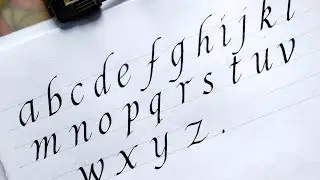 a b c d e f g h i j k l
m n o p q r s t u v
w x y z .